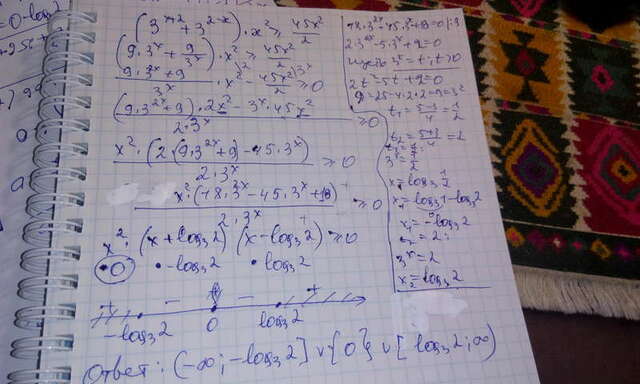 (3^{x+2} + 3^{2-x}) · x² ≥ 45x²/2
(9·3^x + 9/3^x) · x² ≥ 45x²/2
(9·3^{2x} + 9)/3^x · x² - 45x²/2 ≥ 0
((9·3^{2x} + 9)·2x² - 3^x·45x²)/(2·3^x) ≥ 0
x²·(2(9·3^{2x} + 9) - 45·3^x)/(2·3^x) ≥ 0
x²·(18·3^{2x} - 45·3^x + 18)/(2·3^x) ≥ 0
x²·(x + log₃2)(x - log₃2) ≥ 0
•0 •-log₃2 •log₃2
+ - - +
-log₃2 0 log₃2
Ответ: (-∞; -log₃2] ∨ {0} ∨ [log₃2; ∞)
18·3^{2x} - 45·3^x + 18 = 0 | :9
2·3^{2x} - 5·3^x + 2 = 0
пусть 3^x = t, t > 0
2t² - 5t + 2 = 0
D = 25 - 4·2·2 = 9 = 3²
t₁ = (5-3)/4 = 1/2
t₂ = (5+3)/4 = 2
3^x = 1/2
x₁ = log₃ 1/2
x₁ = log₃1 - log₃2
x₁ = -log₃2
t₂ = 2:
3^x = 2
x₂ = log₃2